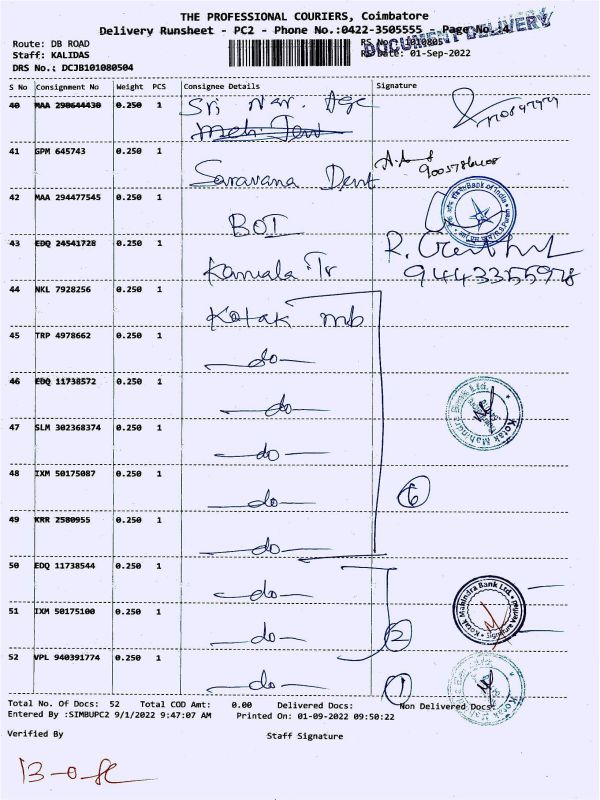 THE PROFESSIONAL COURIERS, Coimbatore
Delivery Runsheet - PC2 - Phone No.:0422-3505555 - Page No.:4
DOCUMENT DELIVERY
Route: DB ROAD
Staff: KALIDAS RS Date: 01-Sep-2022
DRS No.; DCJB101080504
S No Consignment No Weight PCS Consignee Details Signature
40 MAA 290644430 0.250 1 Sri
41 GPM 645743 0.250 1 Saravana Dent
42 MAA 294477545 0.250 1 BOI
Bank of India
43 EDQ 24541728 0.250 1 Kamala Tr
9443355978
44 NKL 7928256 0.250 1 Kotak mb
45 TRP 4978662 0.250 1 -do-
46 EDQ 11738572 0.250 1 -do-
Kotak Mahindra Bank Ltd.
47 SLM 302368374 0.250 1 -do-
48 IXM 50175087 0.250 1 -do- 6
49 KRR 2580955 0.250 1 -do-
50 EDQ 11738544 0.250 1 -do-
Kotak Mahindra Bank Ltd.
51 IXM 50175100 0.250 1 -do- 2
52 VPL 940391774 0.250 1 -do- 1
Total No. Of Docs: 52 Total COD Amt: 0.00 Delivered Docs: Non Delivered Docs:
Entered By :SIMBUPC2 9/1/2022 9:47:07 AM Printed On: 01-09-2022 09:50:22
Verified By Staff Signature